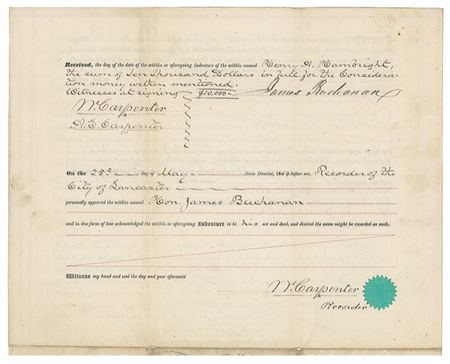 Received, the day of the date of the within or aforegoing Indenture of the within named Henry A. Hambright,
the sum of Ten Thousand Dollars in full for the Considera-
tion money within mentioned.
Witnesses at signing $10,000 James Buchanan
W. Carpenter
A. E. Carpenter
On the 25th day of May Anno Domini, 186 before me, Recorder of the
City of Lancaster
personally appeared the within named Hon. James Buchanan
and in due form of law acknowledged the within or aforegoing Indenture to be his act and deed, and desired the same might be recorded as such.
Witness my hand and seal the day and year aforesaid
W. Carpenter
Recorder